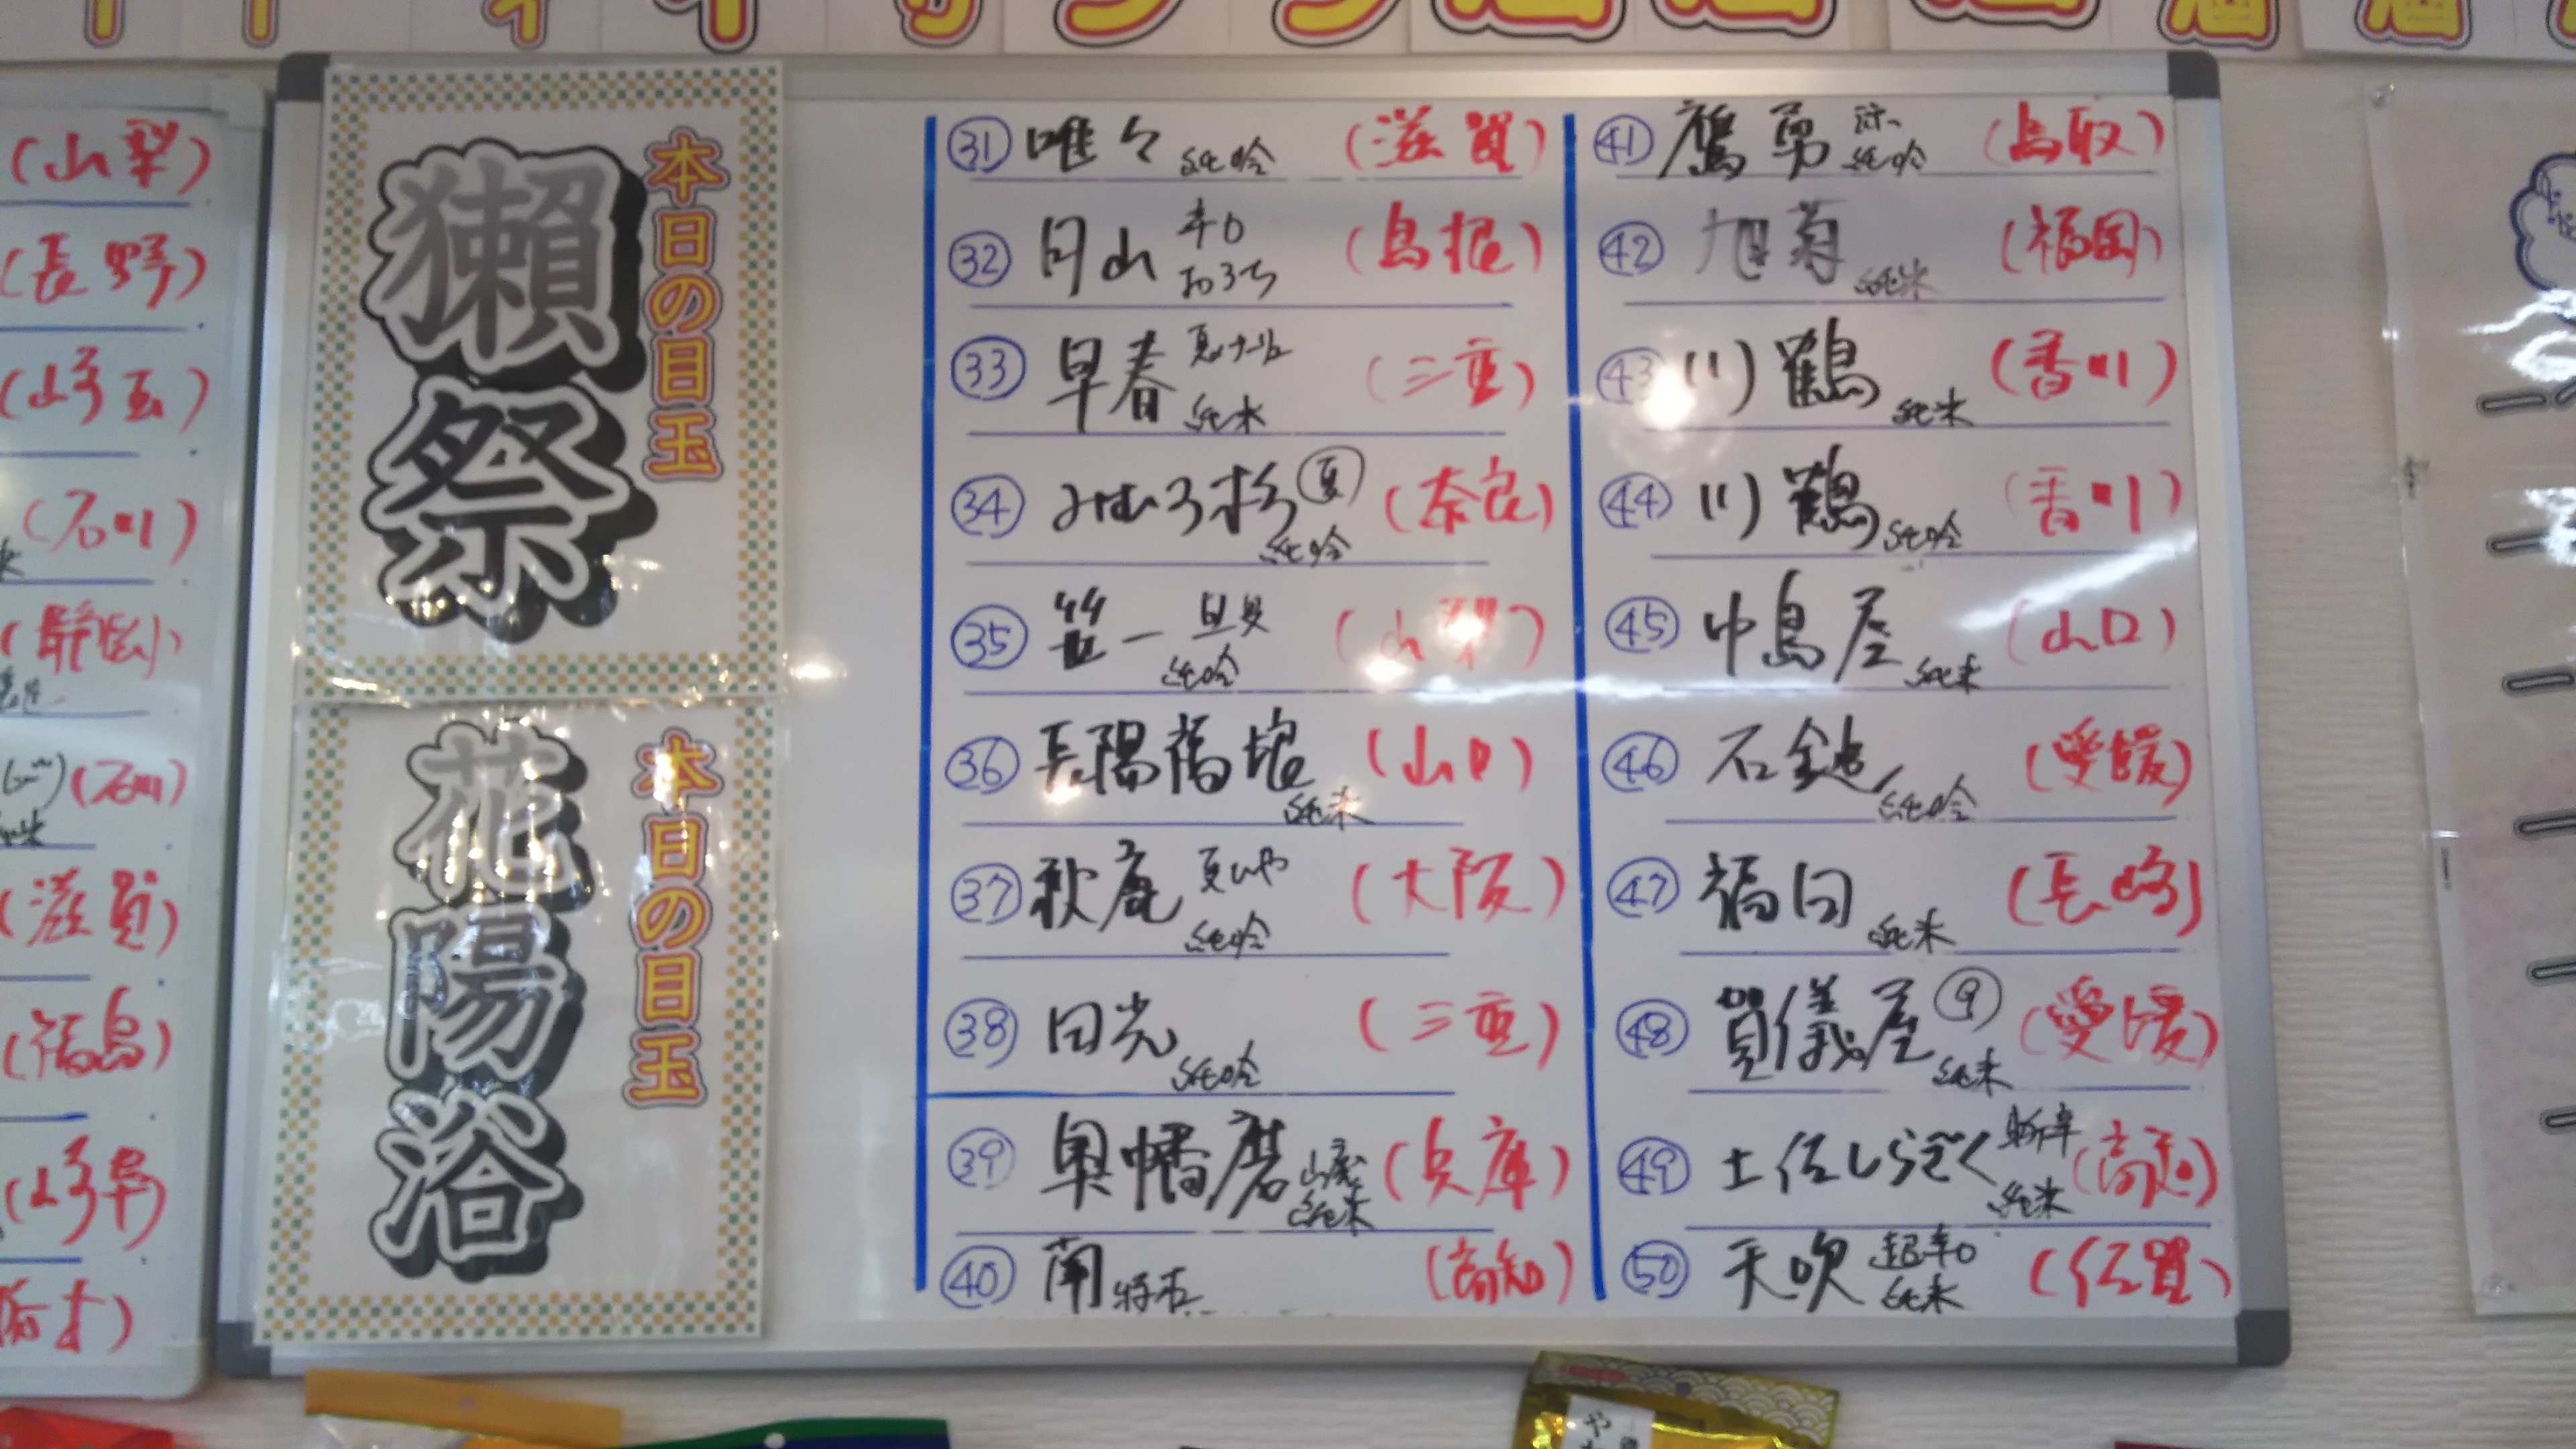 (山梨)
(長野)
(埼玉)
(石川)
(静岡)
(石川)
(滋賀)
(福島)
(岐阜)
(栃木)
本日の目玉
獺祭
本日の目玉
花陽浴
㉛ 唯々 純吟 (滋賀)
㉜ 月山 辛口 おろち (島根)
㉝ 早春 純米 (三重)
㉞ みむろ杉 夏 純吟 (奈良)
㉟ 笹一 旦 純吟 (山梨)
㊱ 長陽福娘 純米 (山口)
㊲ 秋鹿 夏ひや 純吟 (大阪)
㊳ 田光 純吟 (三重)
㊴ 奥播磨 山廃 純米 (兵庫)
㊵ 南 特本 (高知)
㊶ 鷹勇 純吟 (鳥取)
㊷ 旭菊 純米 (福岡)
㊸ 川鶴 純米 (香川)
㊹ 川鶴 純吟 (香川)
㊺ 中島屋 純米 (山口)
㊻ 石鎚 純吟 (愛媛)
㊼ 福田 純米 (長崎)
㊽ 賀儀屋 純米 (愛媛)
㊾ 土佐しらぎく 純米 (高知)
㊿ 天吹 超辛口 純米 (佐賀)